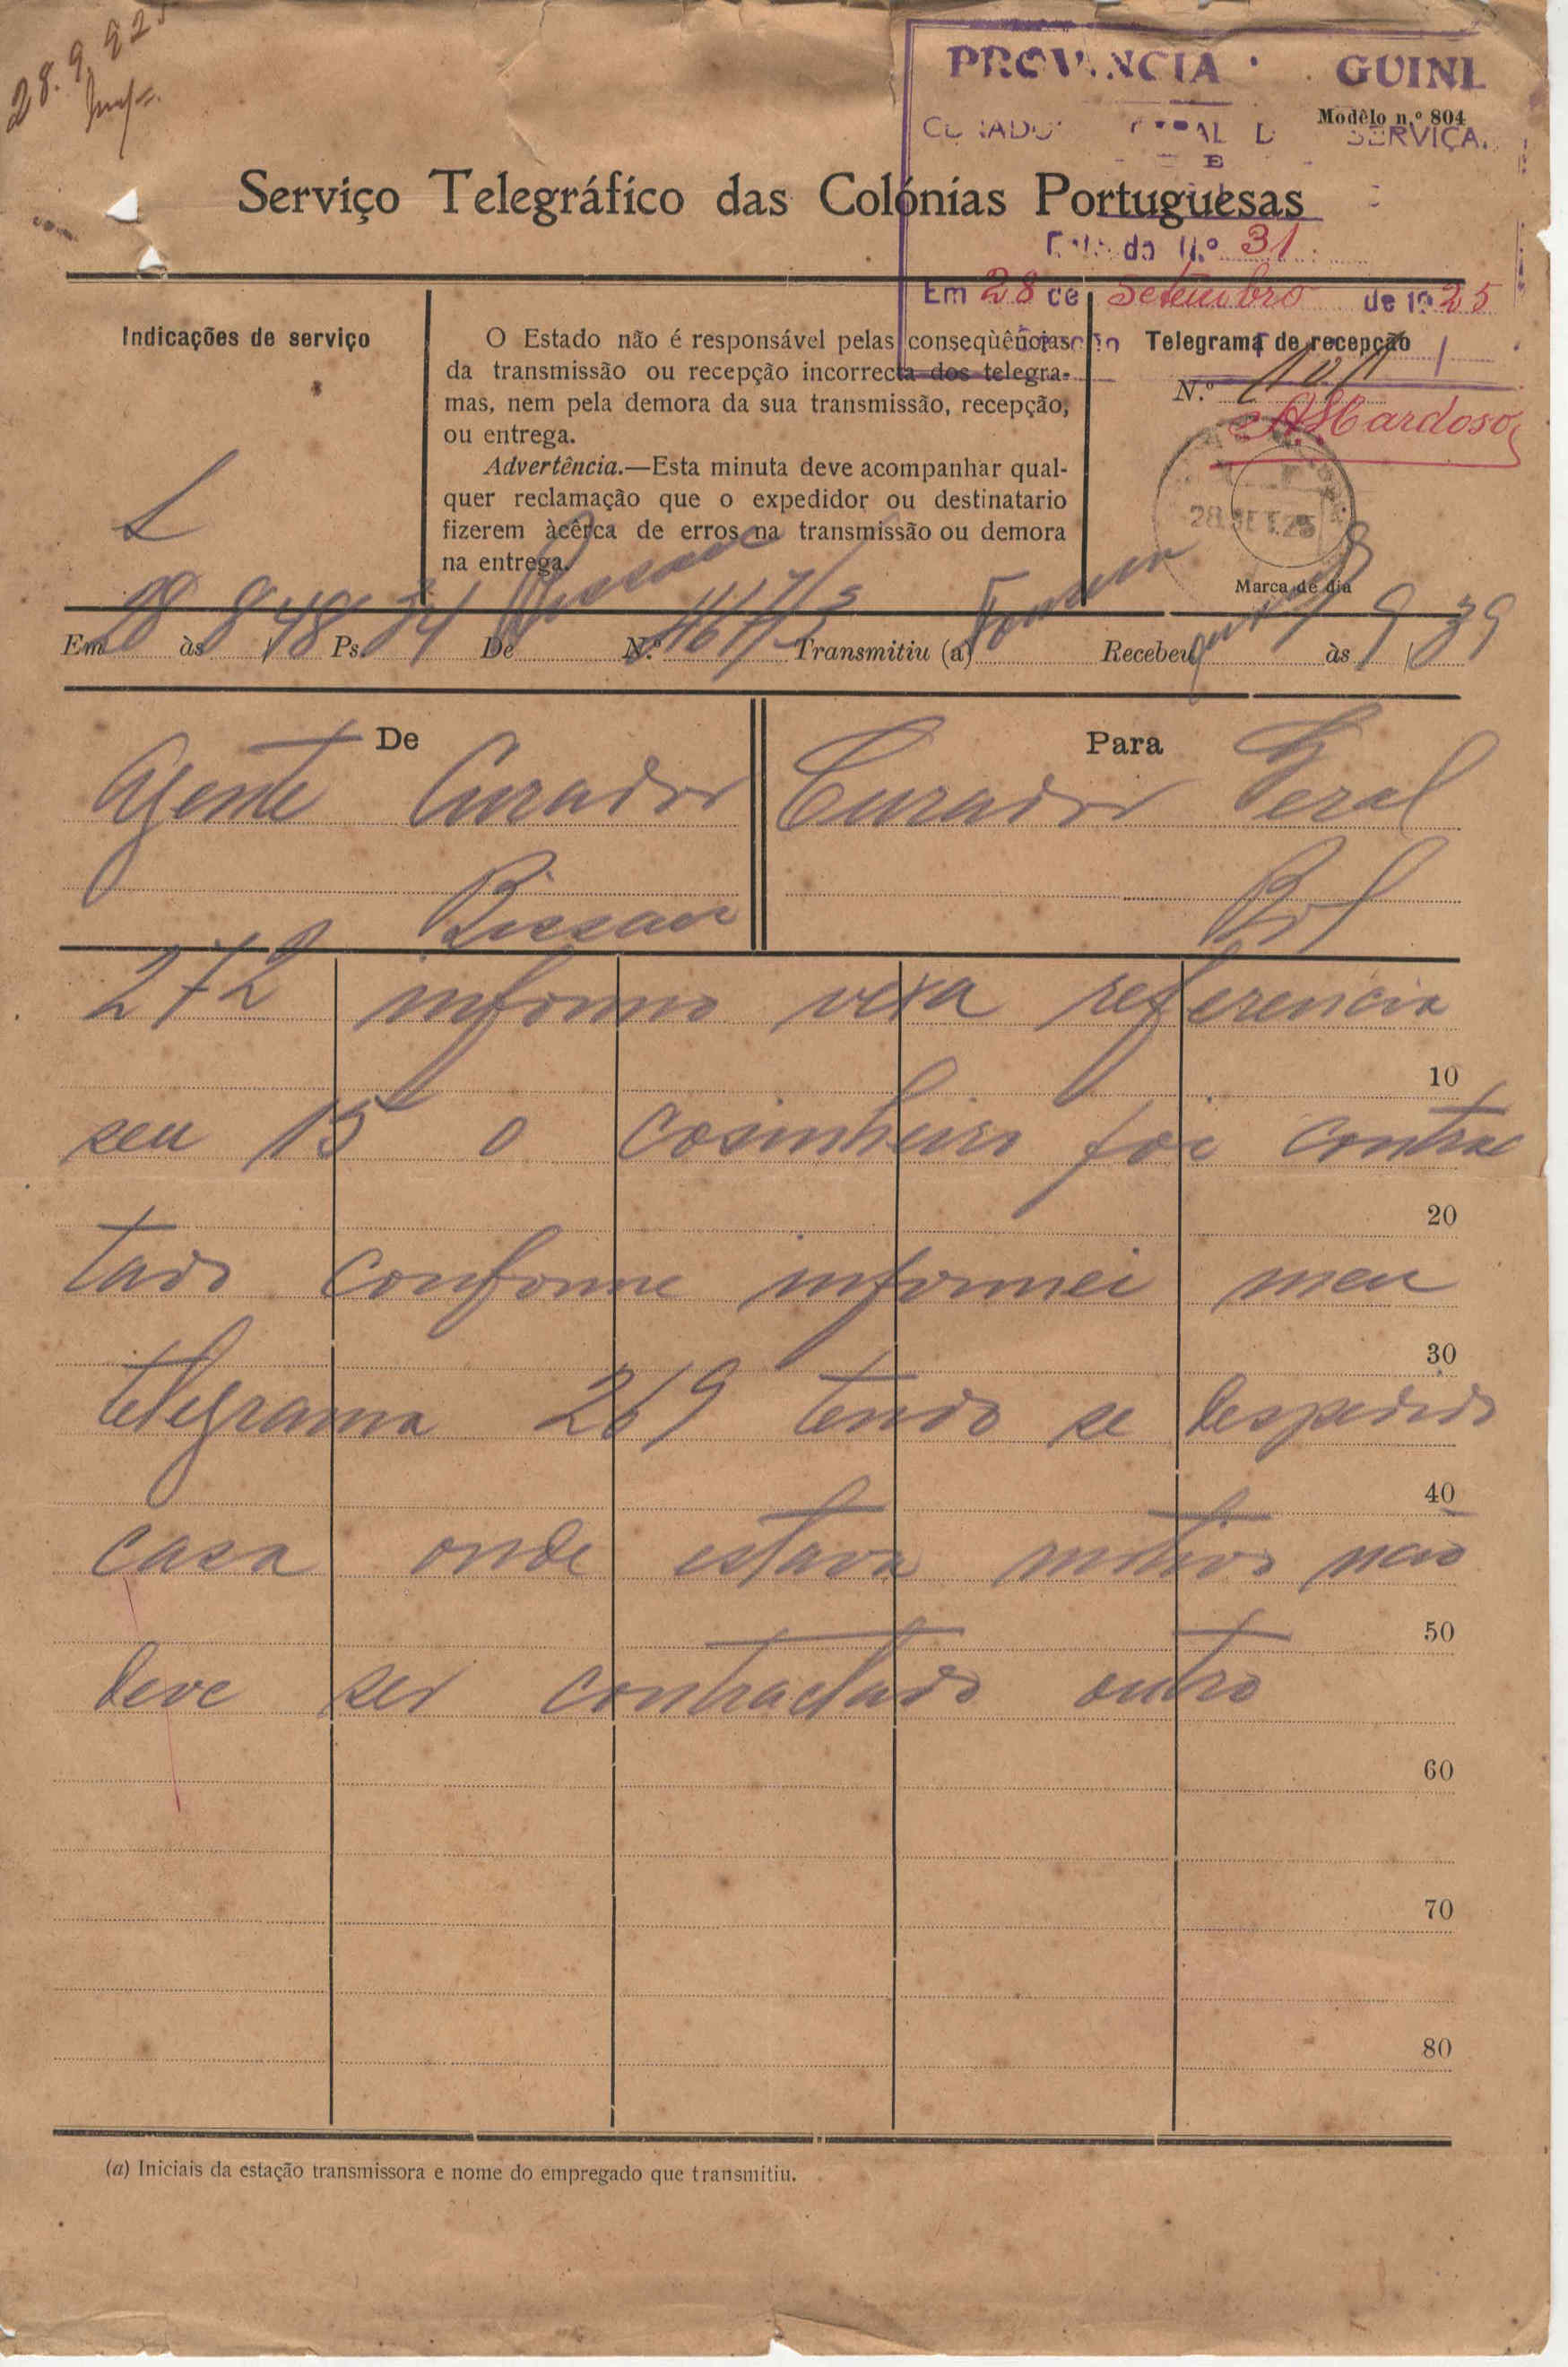 28.9.925
PROVINCIA GUINÉ
Modêlo n.º 804
Serviço Telegráfico das Colónias Portuguesas
E
N.º 31
Em 28 de Setembro de 1925
Indicações de serviço
L
O Estado não é responsável pelas conseqùências
da transmissão ou recepção incorrecta dos telegra-
mas, nem pela demora da sua transmissão, recepção,
ou entrega.
Advertência.—Esta minuta deve acompanhar qual-
quer reclamação que o expedidor ou destinatario
fizerem àcêrca de erros na transmissão ou demora
na entrega.
Telegrama de recepção
N.º
Cardoso
28 SET. 25
Marca de dia
Em 28 às 8/48 Ps. 34 De Bissau N.º Transmitiu (a) Recebeu às 9/39
De
Agente Curador
Bissau
Para
Curador Geral
Bol
272 informo vexa referencia
10
seu 15 o cosinheiro foi contrac
20
tado conforme informei meu
30
telegrama 269 tendo se despedido
40
casa onde estava motivo não
50
deve ser contractado outro
60
70
80
(a) Iniciais da estação transmissora e nome do empregado que transmitiu.